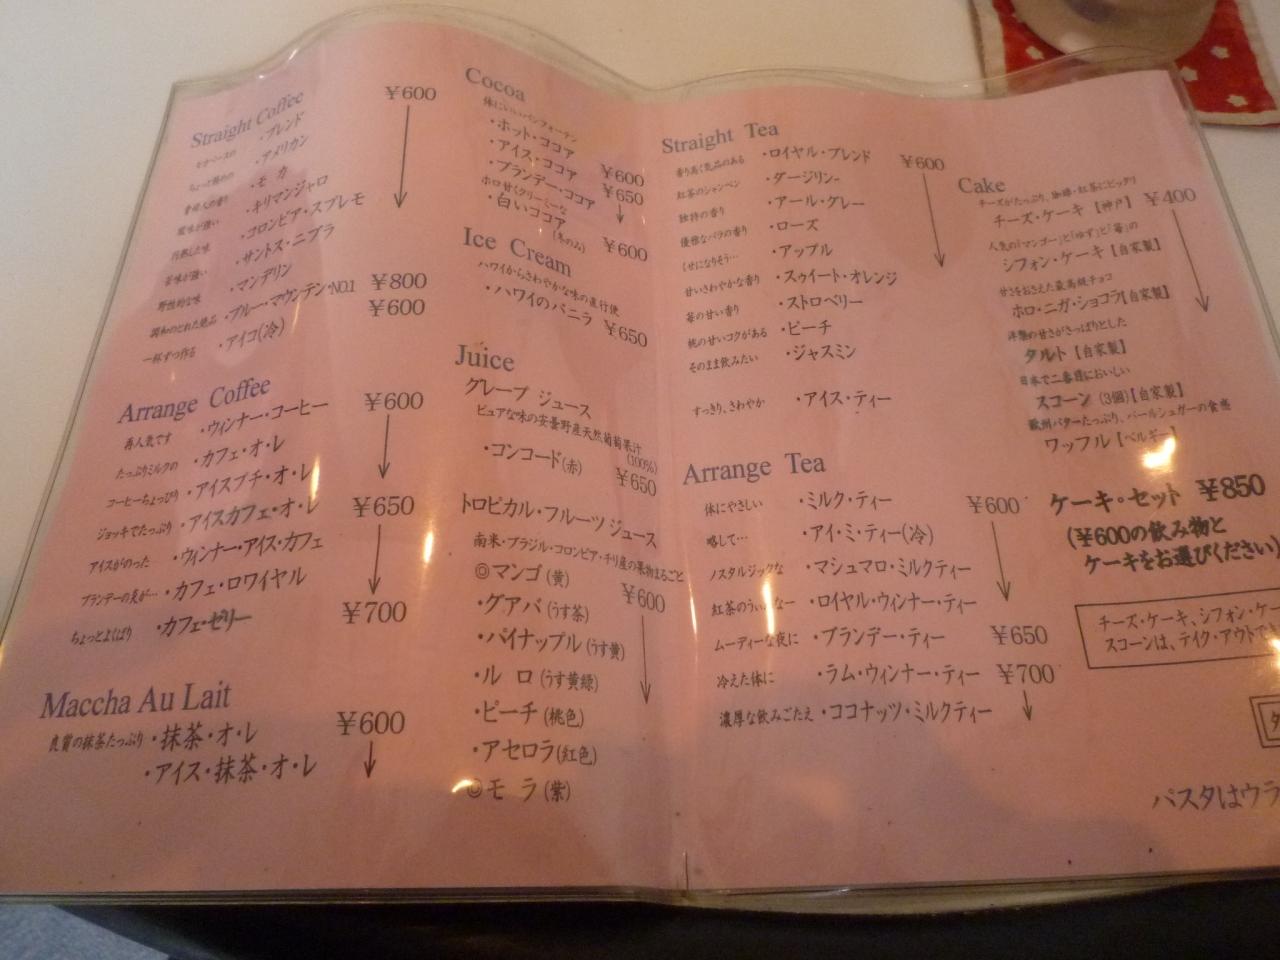 Straight Coffee
・ブレンド ¥600
ちょっと軽めの ・アメリカン
・モカ
酸味が強い ・キリマンジャロ
円熟した味 ・コロンビア・スプレモ
苦味が強い ・サントス・ニブラ
野性的な味 ・マンデリン
調和のとれた絶品 ・ブルー・マウンテンNO.1 ¥800
一杯ずつ作る ・アイコ(冷) ¥600
Arrange Coffee
再人気です ・ウィンナー・コーヒー ¥600
たっぷりミルクの ・カフェ・オ・レ
コーヒーちょっぴり ・アイスプチ・オ・レ
ジョッキでたっぷり ・アイスカフェ・オ・レ ¥650
アイスがのった ・ウィンナー・アイス・カフェ
ブランデーの炎が… ・カフェ・ロワイヤル
ちょっとよくばり ・カフェ・ゼリー ¥700
Maccha Au Lait
良質の抹茶たっぷり ・抹茶・オ・レ ¥600
・アイス・抹茶・オ・レ
Cocoa
体にいいバンフォーテン
・ホット・ココア
・アイス・ココア ¥600
・ブランデー・ココア ¥650
ホロ甘くクリーミーな
・白いココア (冬のみ) ¥600
Ice Cream
ハワイからさわやかな味の直行便
・ハワイのバニラ ¥650
Juice
グレープ ジュース
ピュアな味の安曇野産天然葡萄果汁
(100%)
・コンコード(赤) ¥650
トロピカル・フルーツ ジュース
南米・ブラジル・コロンビア・チリ産の果物まるごと
◎マンゴ (黄) ¥600
・グアバ (うす茶)
・パイナップル (うす黄)
・ルロ (うす黄緑)
・ピーチ (桃色)
・アセロラ (紅色)
◎モラ (紫)
Straight Tea
香り高く気品のある ・ロイヤル・ブレンド ¥600
紅茶のシャンペン ・ダージリン
独特の香り ・アール・グレー
優雅なバラの香り ・ローズ
くせになりそう… ・アップル
甘いさわやかな香り ・スゥイート・オレンジ
苺の甘い香り ・ストロベリー
桃の甘いコクがある ・ピーチ
そのまま飲みたい ・ジャスミン
すっきり、さわやか ・アイス・ティー
Arrange Tea
体にやさしい ・ミルク・ティー ¥600
略して… ・アイ・ミ・ティー(冷)
ノスタルジックな ・マシュマロ・ミルクティー
紅茶のうぃんなー ・ロイヤル・ウィンナー・ティー
ムーディーな夜に ・ブランデー・ティー ¥650
冷えた体に ・ラム・ウィンナー・ティー ¥700
濃厚な飲みごたえ ・ココナッツ・ミルクティー
Cake
チーズがたっぷり、珈琲・紅茶にピッタリ
チーズ・ケーキ【神戸】 ¥400
人気の「マンゴー」と「ゆず」と「苺」の
シフォン・ケーキ【自家製】
甘さをおさえた最高級チョコ
ホロ・ニガ・ショコラ【自家製】
洋梨の甘さがさっぱりとした
タルト【自家製】
日本で二番目においしい
スコーン (3個)【自家製】
欧州バターたっぷり、パールシュガーの食感
ワッフル【ベルギー】
ケーキ・セット ¥850
(¥600の飲み物と
ケーキをお選びください)
チーズ・ケーキ、シフォン・ケー
スコーンは、テイク・アウトでき
パスタはウラ